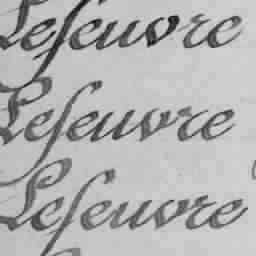 Leseuvre
Leseuvre
Leseuvre